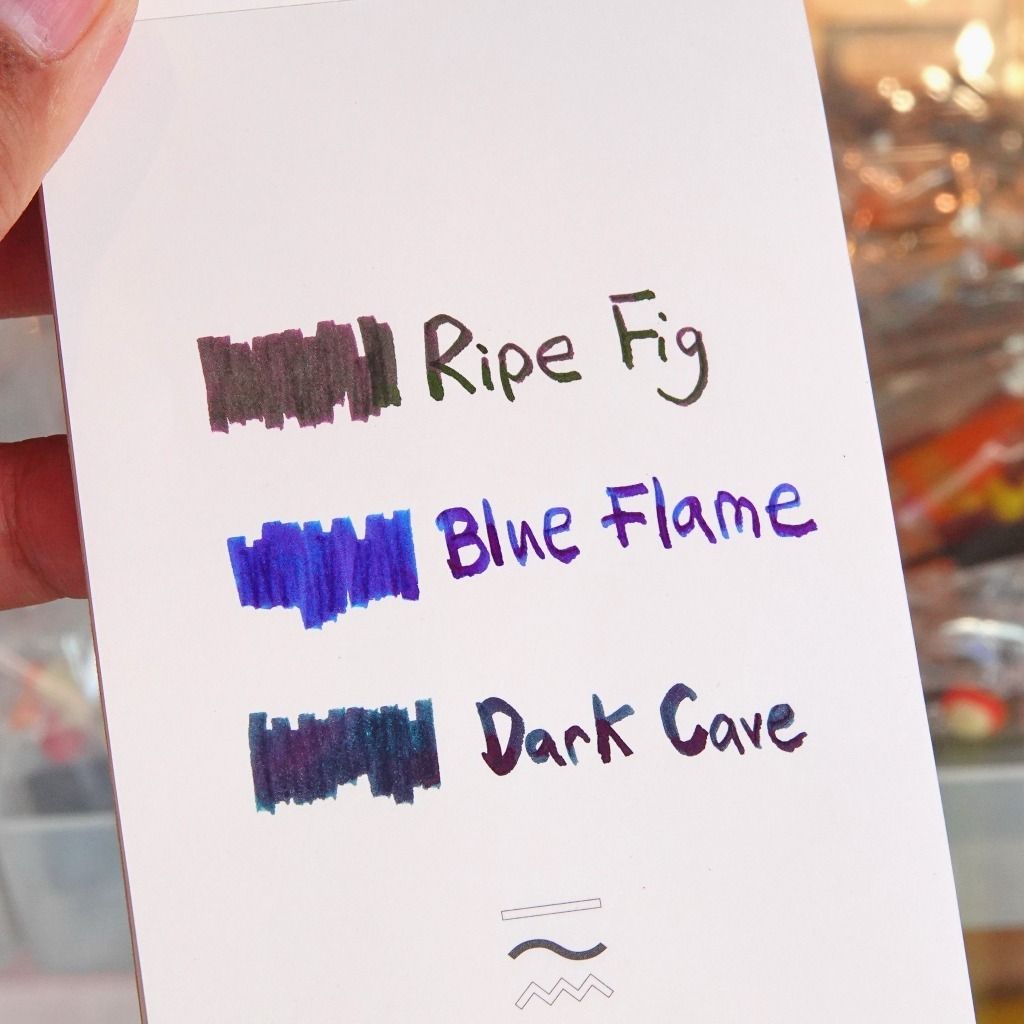 Ripe Fig
Blue Flame
Dark Cave